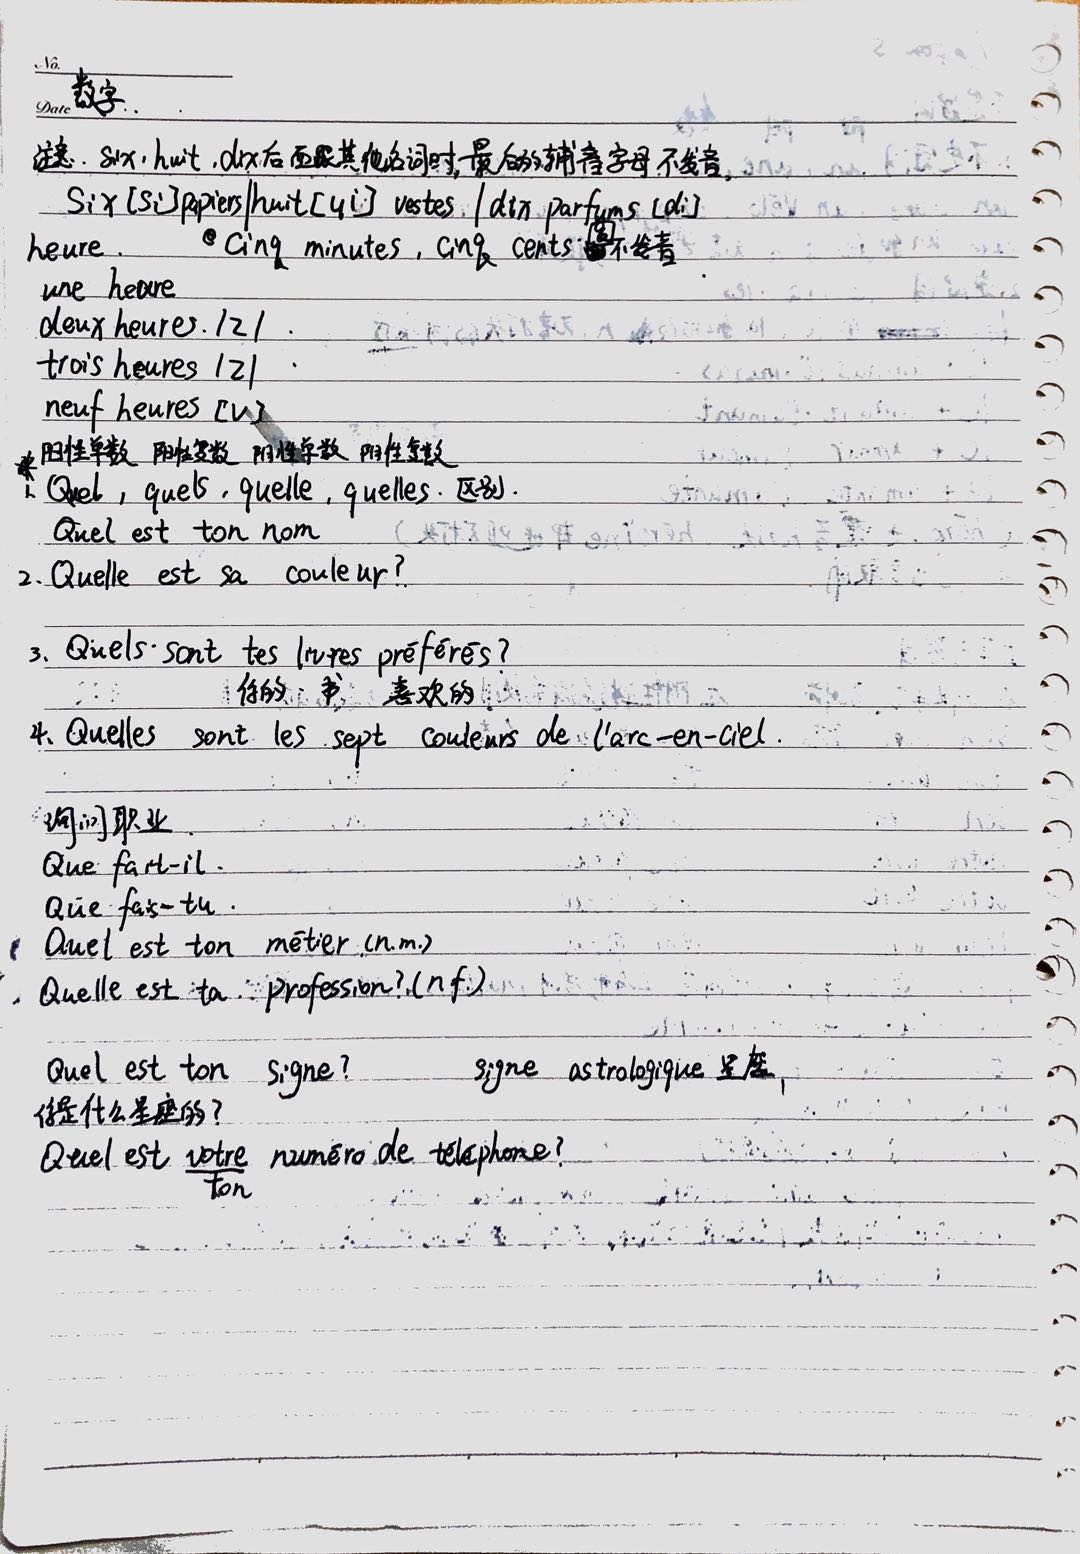 No.
Date 数字
注意. six, huit, dix后面跟其他名词时,最后的辅音字母不发音.
Six [si] papiers/huit [ɥi] vestes / dix parfums [di]
heure. Cinq minutes, cinq cents 不发音
une heure
deux heures. /z/
trois heures /z/
neuf heures [v]
阳性单数 阳性复数 阴性单数 阴性复数
1. Quel, quels, quelle, quelles. 区别.
Quel est ton nom
2. Quelle est sa couleur?
3. Quels sont tes livres préférés?
你的 书 喜欢的
4. Quelles sont les sept couleurs de l'arc-en-ciel.
询问职业
Que fait-il.
Que fais-tu.
Quel est ton métier (n.m.)
Quelle est ta profession? (nf.)
Quel est ton signe? signe astrologique 星座
你是什么星座的?
Quel est votre numéro de téléphone?
ton